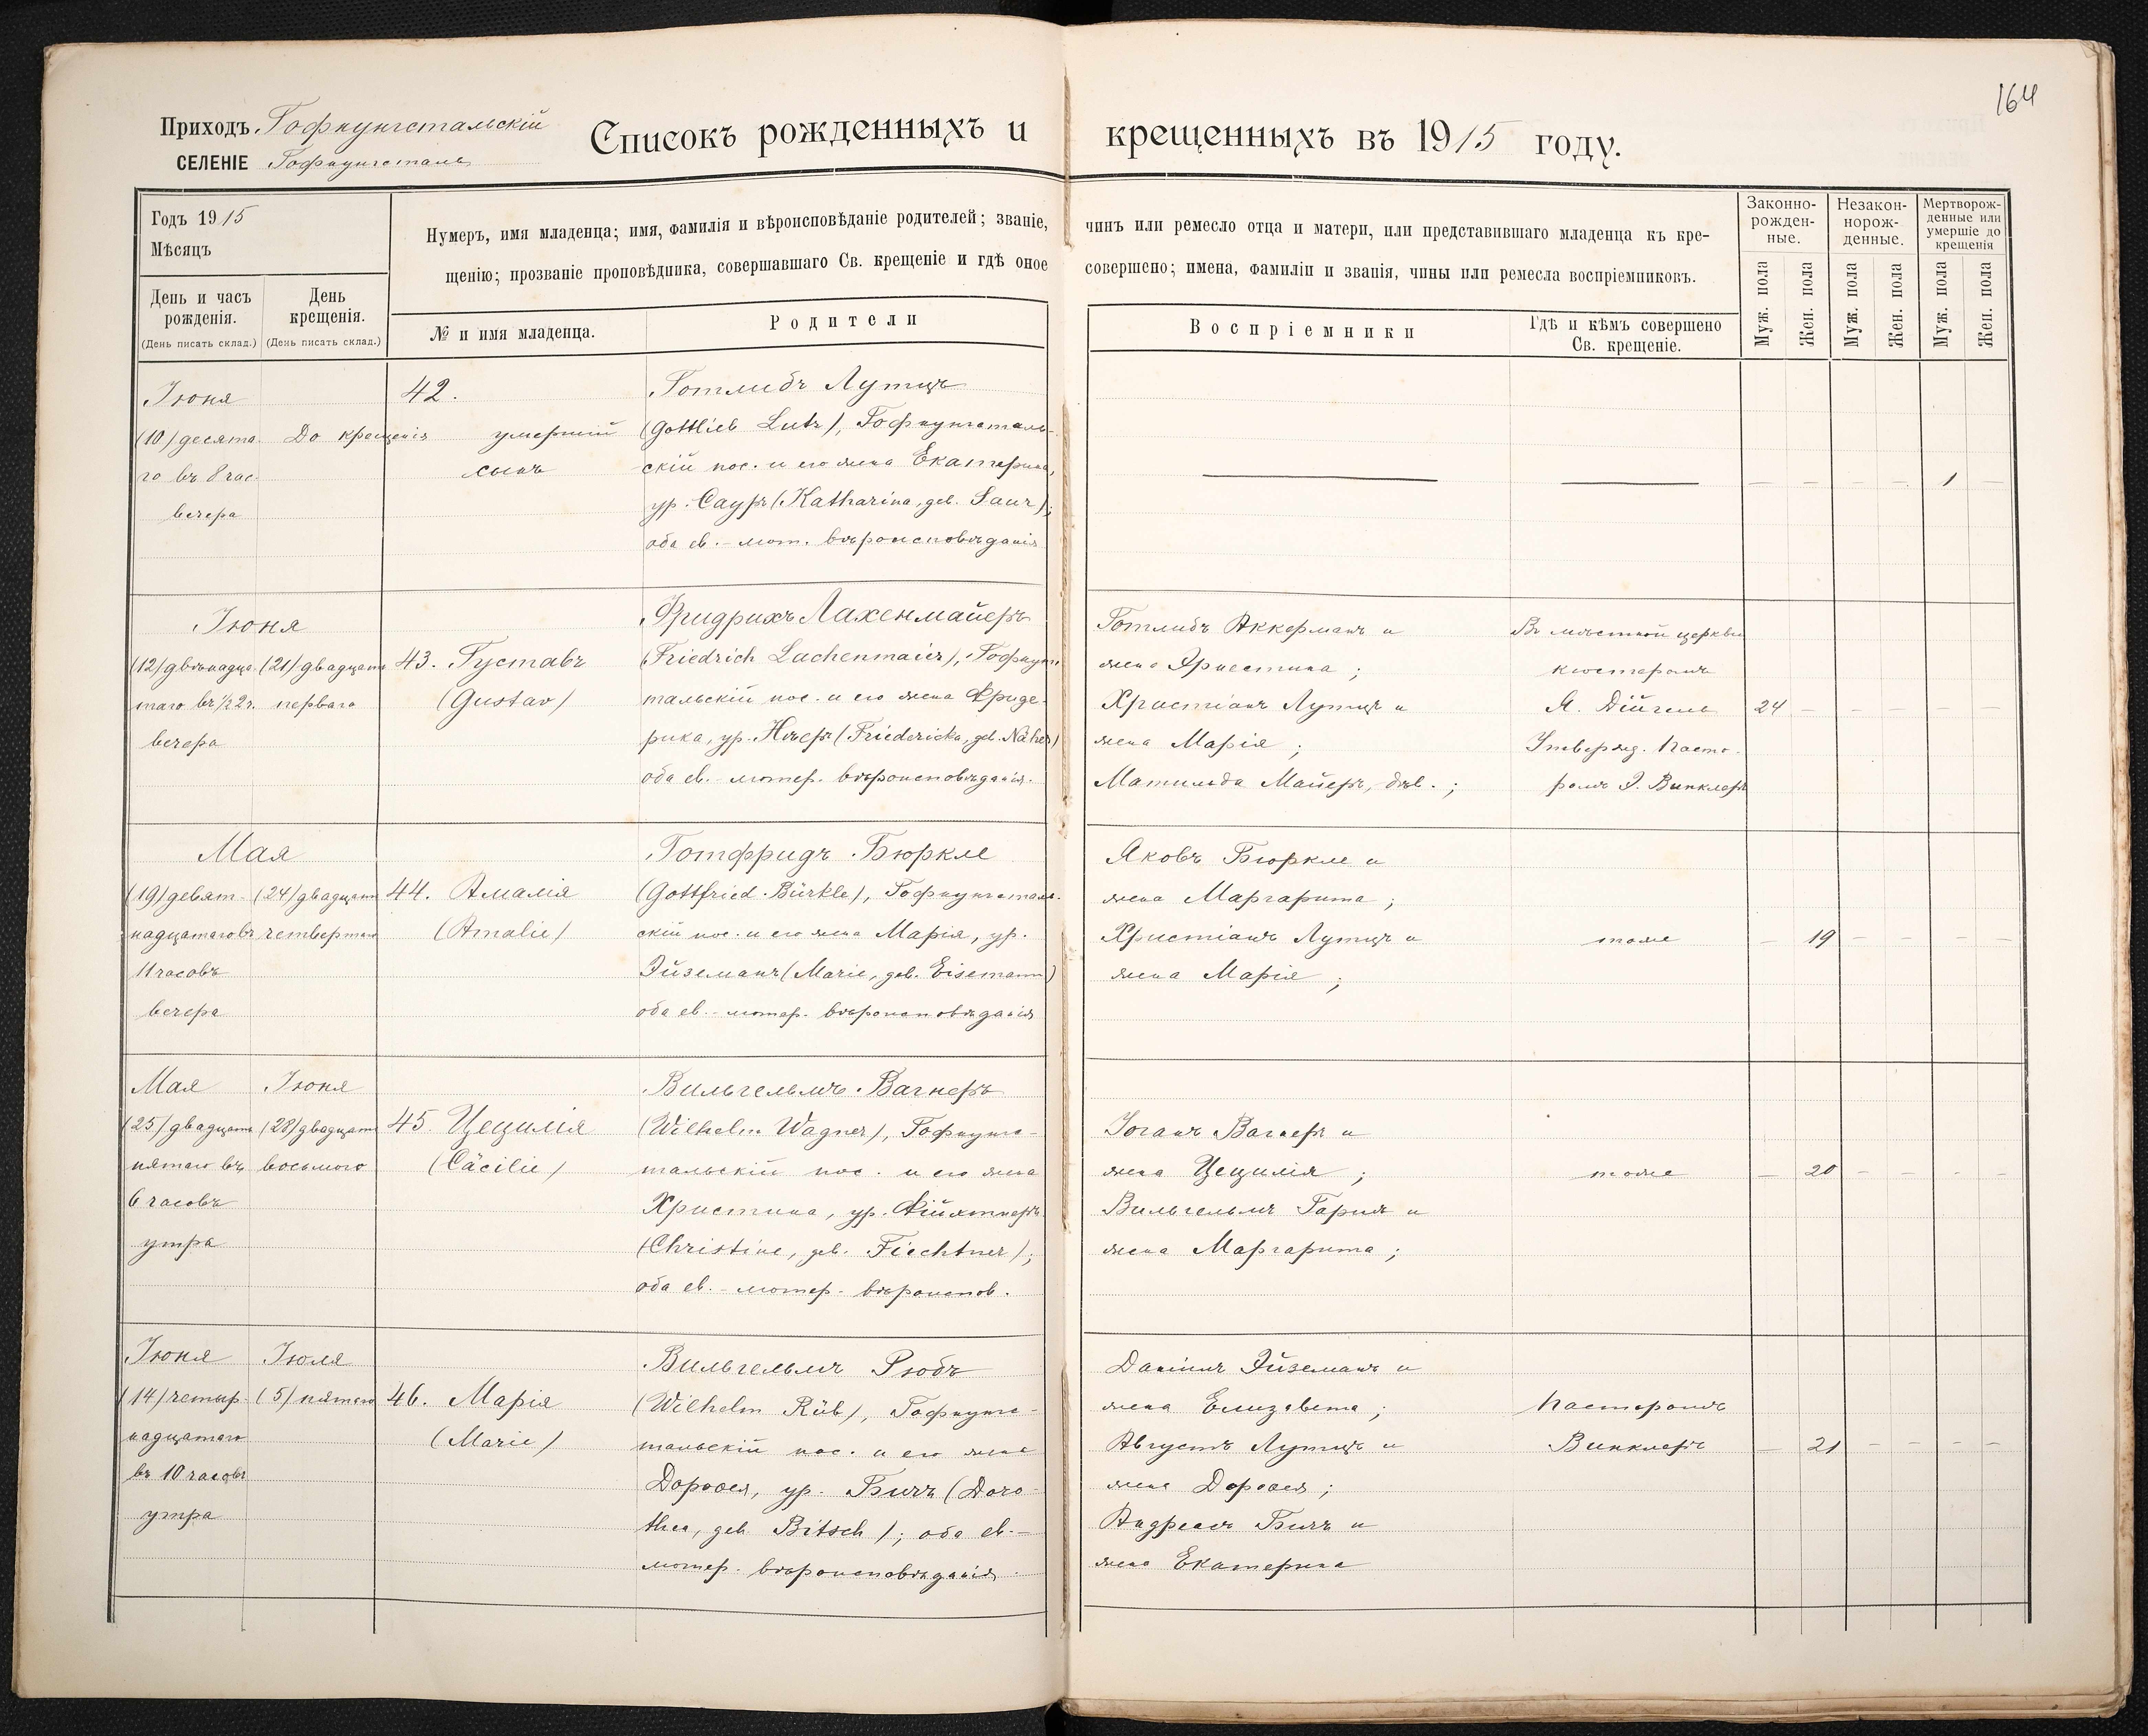 164
Приходъ Гофнунгстальскій
СЕЛЕНІЕ Гофнунгсталь
Списокъ рожденныхъ и крещенныхъ въ 1915 году.
Годъ 1915
Мѣсяцъ
День и часъ рожденія.
(День писать склад.)
День крещенія.
(День писать склад.)
Нумеръ, имя младенца; имя, фамилія и вѣроисповѣданіе родителей; званіе, чинъ или ремесло отца и матери, или представившаго младенца къ кре-
щенію; прозваніе проповѣдника, совершавшаго Св. крещеніе и гдѣ оное совершено; имена, фамиліи и званія, чины или ремесла воспріемниковъ.
№ и имя младенца.
Родители
Воспріемники
Гдѣ и кѣмъ совершено
Св. крещеніе.
Законно-
рожден-
ные.
Незакон-
норож-
денные.
Мертворож-
денные или
умершіе до
крещенія
Муж. пола
Жен. пола
Муж. пола
Жен. пола
Муж. пола
Жен. пола
Іюня
(10) десята-
го въ 8 час.
вечера
До крещенія
42.
умершій
сынъ
Готлибъ Лутцъ
(Gottlieb Lutz), Гофнунгсталь-
скій пос. и его жена Екатерина,
ур. Сауръ (Katharina, geb. Saur);
оба ев.-лют. вѣроисповѣданія
— — — — 1 —
Іюня
(12) двѣнадца-
таго въ ½2 ч.
вечера
(21) двадцать
перваго
43. Густавъ
(Gustav)
Фридрихъ Лахенмайеръ
(Friedrich Lachenmaier), Гофнунгс-
тальскій пос. и его жена Фриде-
рика, ур. Нэеръ (Friedericka, geb. Näher)
оба ев.-лютер. вѣроисповѣданія.
Готлибъ Аккерманъ и
жена Эрнестина;
Христіанъ Лутцъ и
жена Марія;
Матильда Майеръ, дѣв.;
Въ мѣстной церкви
кюстеромъ
Я. Дійгель
Утвержд. пасто-
ромъ Э. Винклеръ
24 — — — — —
Мая
(19) девят-
надцатаго въ
11 часовъ
вечера
(24) двадцать
четвертаго
44. Амалія
(Amalie)
Готфридъ Бюркле
(Gottfried Bürkle), Гофнунгсталь-
скій пос. и его жена Марія, ур.
Эйземанъ (Marie, geb. Eisemann)
оба ев.-лютер. вѣроисповѣданія
Яковъ Бюркле и
жена Маргарита;
Христіанъ Лутцъ и
жена Марія;
тоже
— 19 — — — —
Мая
(25) двадцать
пятаго въ
6 часовъ
утра
Іюня
(28) двадцать
восьмого
45. Цецилія
(Cäcilie)
Вильгельмъ Вагнеръ
(Wilhelm Wagner), Гофнунгс-
тальскій пос. и его жена
Христина, ур. Фійхтнеръ
(Christine, geb. Fiechtner);
оба ев.-лютер. вѣроиспов.
Іоганъ Вагнеръ и
жена Цецилія;
Вильгельмъ и
жена Маргарита;
тоже
— 20 — — — —
Іюня
(14) четыр-
надцатаго
въ 10 часовъ
утра
Іюля
(5) пятаго
46. Марія
(Marie)
Вильгельмъ Рюбъ
(Wilhelm Rüb), Гофнунгс-
тальскій пос. и его жена
Дороѳея, ур. Бичъ (Doro-
thea, geb. Bitsch); оба ев.-
лютер. вѣроисповѣданія.
Даніилъ Эйземанъ и
жена Елизавета;
Августъ Лутцъ и
жена Дороѳея;
Андреасъ Бичъ и
жена Екатерина
Пасторомъ
Винклеръ
— 21 — — — —